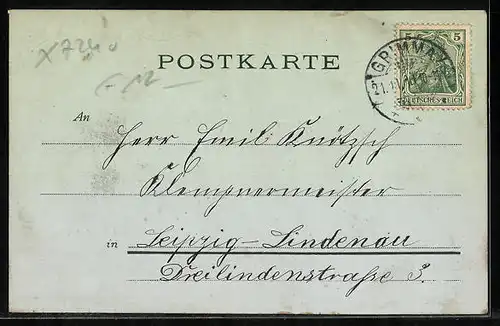 POSTKARTE
5 5
GRIMMA
DEUTSCHES REICH
An
Herrn Emil Knötzsch
Klempnermeister
in Leipzig-Lindenau
Dreilindenstraße 3.